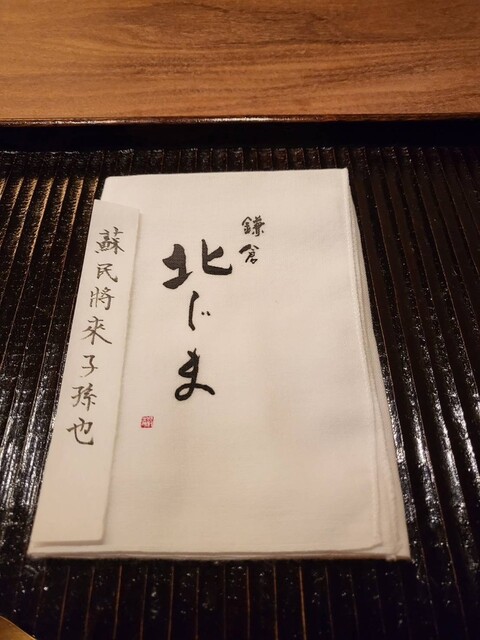 鎌倉
北じま
蘇民將來子孫也